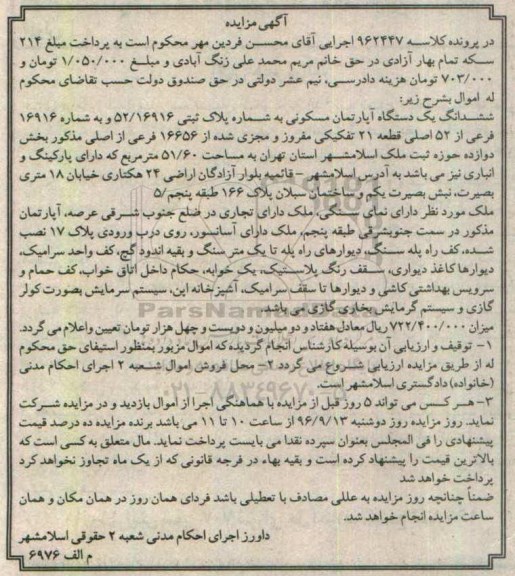 آگهی مزایده
در پرونده کلاسه ۹۶۲۴۴۷ اجرایی آقای محسن فردین مهر محکوم است به پرداخت مبلغ ۲۱۴
سکه تمام بهار آزادی در حق خانم مریم محمد علی زنگ آبادی و مبلغ ۱/۰۵۰/۰۰۰ تومان و
۷۰۳/۰۰۰ تومان هزینه دادرسی، نیم عشر دولتی در حق صندوق دولت حسب تقاضای محکوم
له اموال بشرح زیر:
ششدانگ یک دستگاه آپارتمان مسکونی به شماره پلاک ثبتی ۵۲/۱۶۹۱۶ و به شماره ۱۶۹۱۶
فرعی از ۵۲ اصلی قطعه ۲۱ تفکیکی مفروز و مجزی شده از ۱۶۶۵۶ فرعی از اصلی مذکور بخش
دوازده حوزه ثبت ملک اسلامشهر استان تهران به مساحت ۵۱/۶۰ مترمربع که دارای پارکینگ و
انباری نیز می باشد به آدرس اسلامشهر - قائمیه بلوار آزادگان اراضی ۲۴ هکتاری خیابان ۱۸ متری
بصیرت، نبش بصیرت یکم ساختمان سبلان پلاک ۱۶۶ طبقه پنجم/۵
ملک مورد نظر دارای نمای سنگی، ملک دارای تجاری در ضلع جنوب شرقی عرصه، آپارتمان
مذکور در سمت جنوبشرقی طبقه پنجم، ملک دارای آسانسور، روی درب ورودی پلاک ۱۷ نصب
شده، کف راه پله سنگ، دیوارهای راه پله تا یک متر سنگ و بقیه اندود گچ، کف واحد سرامیک،
دیوارها کاغذ دیواری، سقف رنگ پلاستیک، یک خوابه، حکام داخل اتاق خواب، کف حمام و
سرویس بهداشتی کاشی و دیوارها تا سقف سرامیک، آشپزخانه اپن، سیستم سرمایش بصورت کولر
گازی و سیستم گرمایش بخاری گازی می باشد.
میزان ۷۲۲/۴۰۰/۰۰۰ ریال معادل هفتاد و دو میلیون و دویست و چهل هزار تومان تعیین واعلام می گردد.
۱- توقیف و ارزیابی آن بوسیله کارشناس انجام گردیده که اموال مزبور بمنظور استیفای حق محکوم
له از طریق مزایده ارزیابی شروع می گردد ۲- محل فروش اموال شعبه ۲ اجرای احکام مدنی
(خانواده) دادگستری اسلامشهر است.
۳- هر کس می تواند ۵ روز قبل از مزایده با هماهنگی اجرا از اموال بازدید و در مزایده شرکت
نماید. روز مزایده روز دوشنبه ۹۶/۹/۱۳ از ساعت ۱۰ تا ۱۱ می باشد برنده مزایده ده درصد قیمت
پیشنهادی را فی المجلس بعنوان سپرده نقدا می بایست پرداخت نماید. مال متعلق به کسی است که
بالاترین قیمت را پیشنهاد کرده است و بقیه بهاء در فرجه قانونی که از یک ماه تجاوز نخواهد کرد
پرداخت خواهد شد
ضمناً چنانچه روز مزایده به عللی مصادف با تعطیلی باشد فردای همان روز در همان مکان و همان
ساعت مزایده انجام خواهد شد.
داورز اجرای احکام مدنی شعبه ۲ حقوقی اسلامشهر
م الف ۶۹۷۶